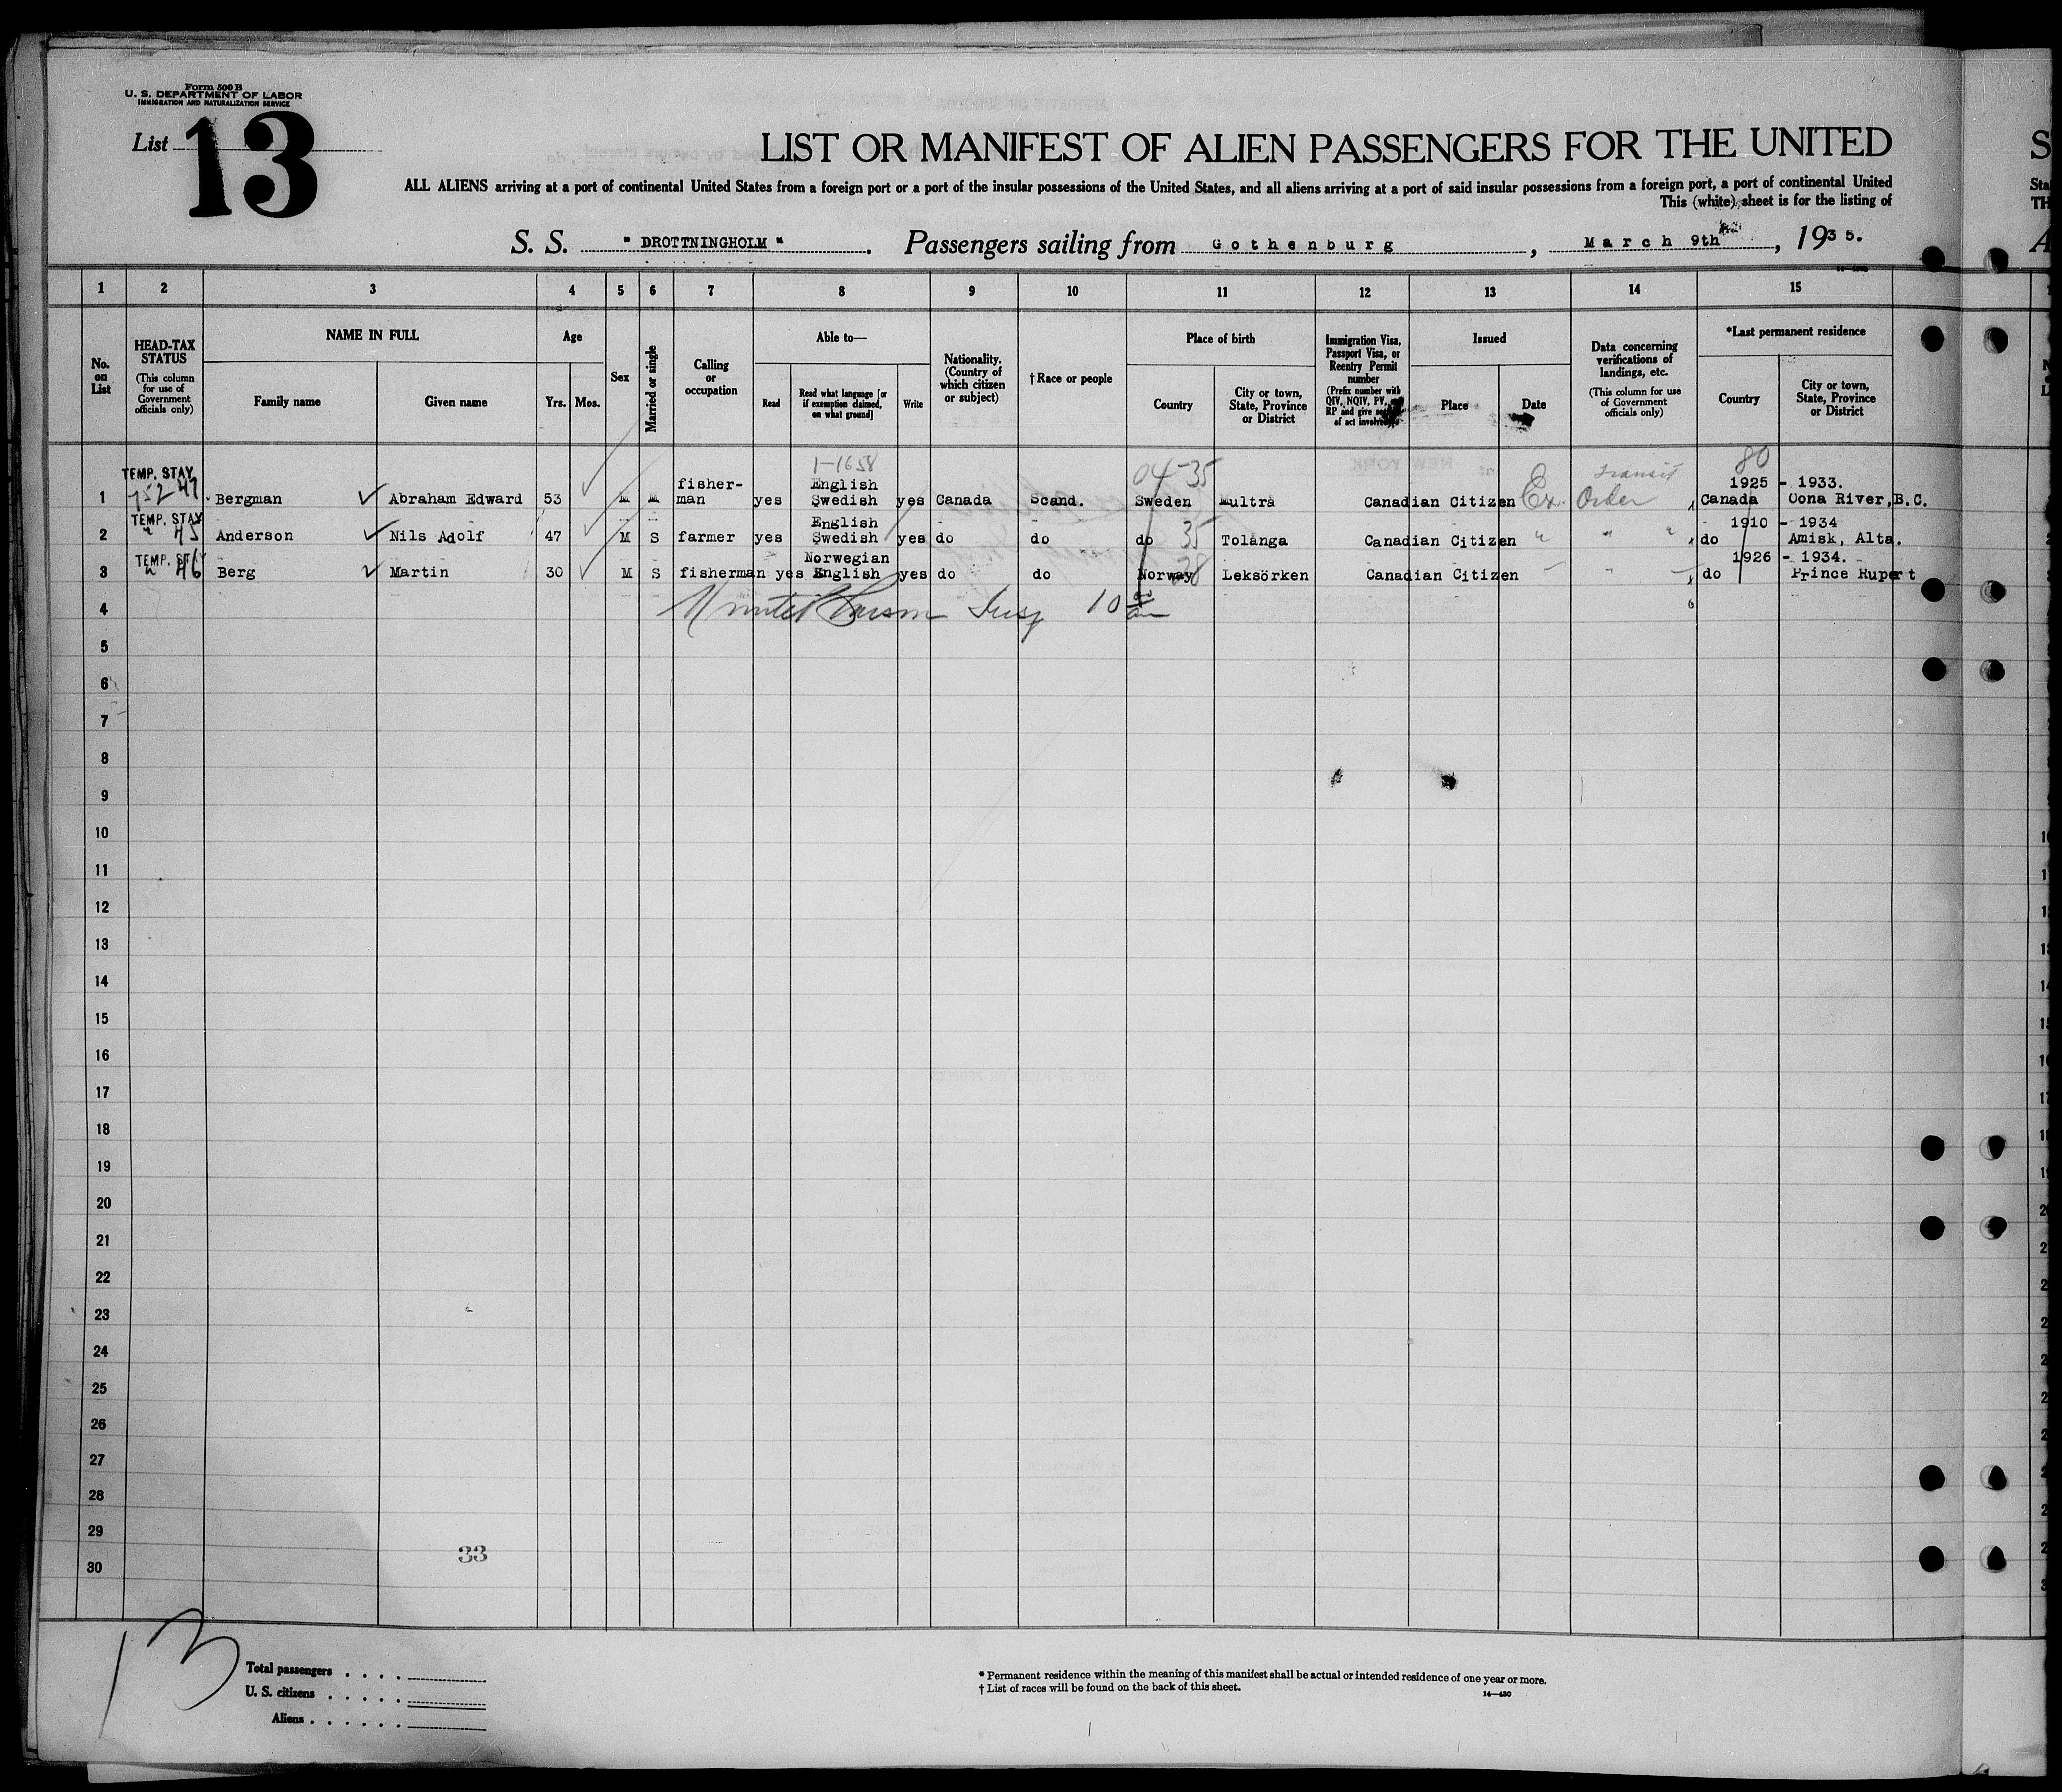 Form 500 B
U. S. DEPARTMENT OF LABOR
IMMIGRATION AND NATURALIZATION SERVICE
List 13
LIST OR MANIFEST OF ALIEN PASSENGERS FOR THE UNITED
ALL ALIENS arriving at a port of continental United States from a foreign port or a port of the insular possessions of the United States, and all aliens arriving at a port of said insular possessions from a foreign port, a port of continental United
This (white) sheet is for the listing of
S. S. " DROTTNINGHOLM " . Passengers sailing from Gothenburg , March 9th , 1935.
1 2 3 4 5 6 7 8 9 10 11 12 13 14 15
No. on List
HEAD-TAX STATUS
(This column for use of Government officials only)
NAME IN FULL
Family name
Given name
Age
Yrs. Mos.
Sex
Married or single
Calling or occupation
Able to—
Read
Read what language [or if exemption claimed, on what ground]
Write
Nationality. (Country of which citizen or subject)
† Race or people
Place of birth
Country
City or town, State, Province or District
Immigration Visa, Passport Visa, or Reentry Permit number
(Prefix number with QIV, NQIV, PV, or RP and give section of act involved)
Issued
Place
Date
Data concerning verifications of landings, etc.
(This column for use of Government officials only)
*Last permanent residence
Country
City or town, State, Province or District
TEMP. STAY 1-1658 04-35 Transit 80
1 Bergman Abraham Edward 53 M M fisher-man yes English Swedish yes Canada Scand. Sweden Multra Canadian Citizen Ex. Order Canada 1925 - 1933. Oona River, B.C.
TEMP. STAY
2 " 45 Anderson Nils Adolf 47 M S farmer yes English Swedish yes do do do 35 Tolanga Canadian Citizen " " " do 1910 - 1934 Amisk, Alta.
TEMP. STAY
3 " 46 Berg Martin 30 M S fisherman yes Norwegian English yes do do Norway 28 Leksörken Canadian Citizen do 1926 - 1934. Prince Rupert
4 Insp 10
5
6
7
8
9
10
11
12
13
14
15
16
17
18
19
20
21
22
23
24
25
26
27
28
29
33
30
13
Total passengers
U. S. citizens
Aliens
* Permanent residence within the meaning of this manifest shall be actual or intended residence of one year or more.
† List of races will be found on the back of this sheet.
14—430